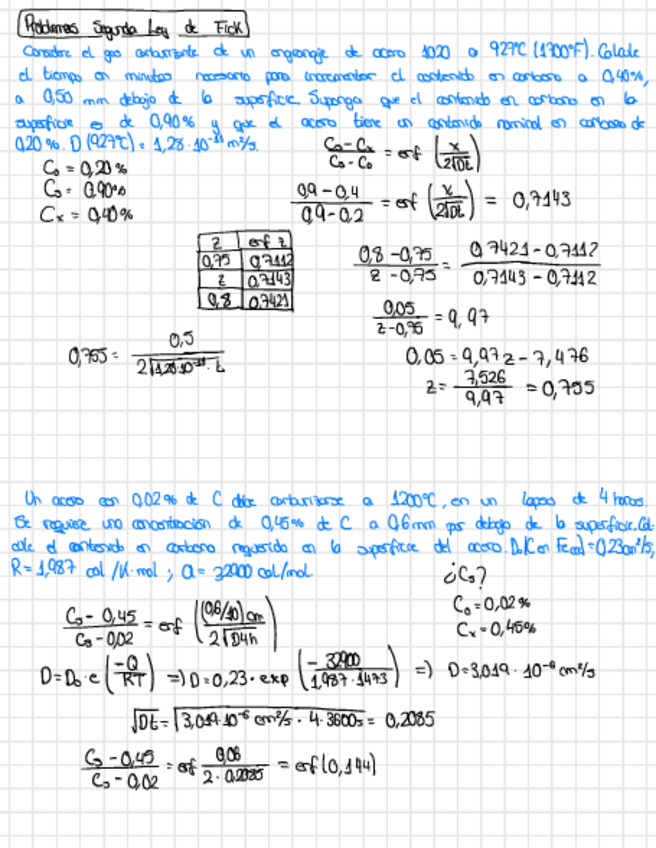 Problemas Segunda Ley de Fick
Considere el gas carburizante de un engranaje de acero 1020 a 927°C (1700°F). Calcule
el tiempo en minutos necesario para incrementar el contenido en carbono a 0,40%,
a 0,50 mm debajo de la superficie. Suponga que el contenido en carbono en la
superficie es de 0,90% y que el acero tiene un contenido nominal en carbono de
0,20%. D (927°C) = 1,28·10⁻¹¹ m²/s.
C₀ = 0,20%
Cₛ = 0,90%
Cₓ = 0,40%
Cₛ - Cₓ / Cₛ - C₀ = erf (x / 2√Dt)
0,9 - 0,4 / 0,9 - 0,2 = erf (x / 2√Dt) = 0,7143
z erf z
0,75 0,7112
z 0,7143
0,8 0,7421
0,8 - 0,75 / z - 0,75 = 0,7421 - 0,7112 / 0,7143 - 0,7112
0,05 / z - 0,75 = 9,97
0,05 = 9,97 z - 7,476
z = 7,526 / 9,97 = 0,755
0,755 = 0,5 / 2√1,28·10⁻¹¹· t
Un acero con 0,02% de C debe carburizarse a 1200°C, en un lapso de 4 horas.
Se requiere una concentración de 0,45% de C a 0,6mm por debajo de la superficie. Cal-
cule el contenido en carbono requerido en la superficie del acero. D₀(C en Fe) = 0,23cm²/s;
R = 1,987 cal/K·mol ; Q = 32900 cal/mol.
¿Cₛ?
C₀ = 0,02%
Cₓ = 0,45%
Cₛ - 0,45 / Cₛ - 0,02 = erf ((0,6/10) cm / 2√D4h)
D = D₀·e (-Q / RT) => D = 0,23·exp (- 32900 / 1,987·1473) => D = 3,019·10⁻⁶ cm²/s
√Dt = √3,019·10⁻⁶ cm²/s · 4·3600s = 0,2085
Cₛ - 0,45 / Cₛ - 0,02 = erf 0,06 / 2·0,2085 = erf (0,144)